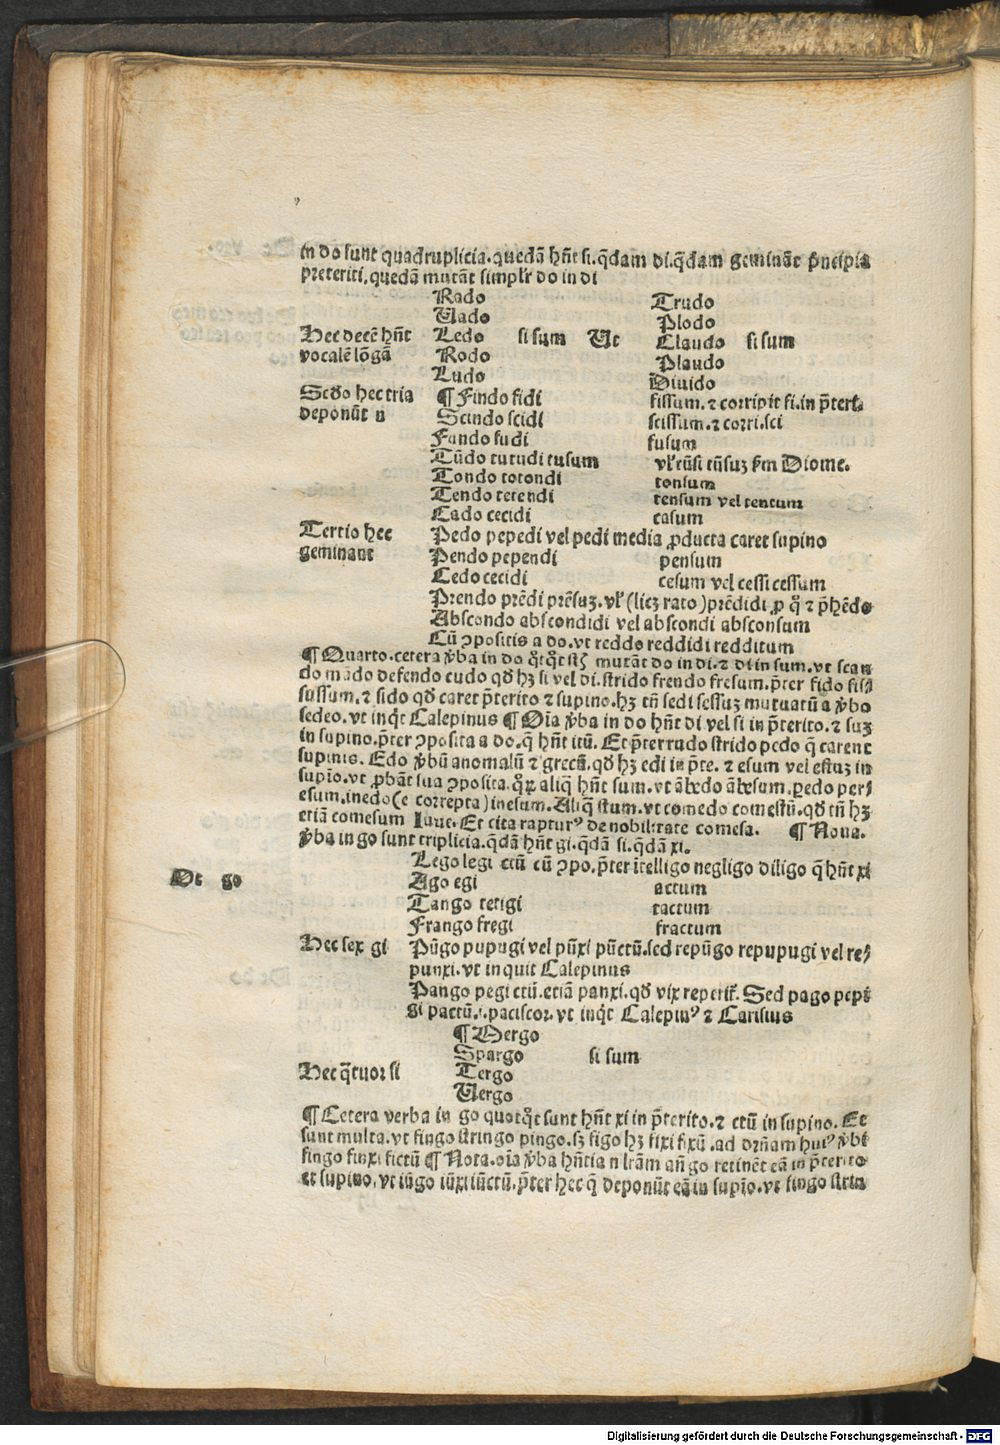 in do sunt quadruplicia. quedā hn̄t si. q̄dam di. q̄dam gemināt pͥncipia
preteriti. quedā mutāt simplr̄ do in di
Rado Trudo
Uado Plodo
Hec decē hn̄t Ledo si sum Ut Claudo si sum
vocalē lōgā Rodo Plaudo
Ludo Diuido
Scd̄o hec tria ¶ Findo fidi fissum. ⁊ corripit fi. in p̄terit.
deponūt n Scindo scidi scissum. ⁊ corri. sci
Fundo fudi fusum
Tūdo tutudi tusum vl̓ tūsi tūsuꝫ ẜm Diome.
Tondo totondi tonsum
Tendo tetendi tensum vel tentum
Cado cecidi casum
Tertio hec Pedo pepedi vel pedi media ꝓducta caret supino
geminant Pendo pependi pensum
Cedo cecidi cesum vel cessi cessum
Prendo prēdi prēsuꝫ. vl̓ (licꝫ raro) prēdidi ꝓ qͦ ⁊ p̄hēdo
Abscondo abscondidi vel abscondi absconsum
Cū ꝯpositis a do. vt reddo reddidi redditum
¶ Quarto. cetera v̓ba in do qͦtqͦt sūt mutāt do in di. ⁊ di in sum. vt scan
do mādo defendo cudo qd̄ hꝫ si vel di. strido frendo fresum. p̄ter fido fis⸗
sussum. ⁊ sido qd̄ caret p̄terito ⁊ supino. hꝫ tn̄ sedi sessuꝫ mutuatū a v̓bo
sedeo. vt inqͥt Calepinus ¶ Oīa v̓ba in do hn̄t di vel si in p̄terito. ⁊ suꝫ
in supino. p̄ter ꝯposita a do. q̄ hn̄t itū. Et p̄ter rudo strido pedo q̄ carent
supinis. Edo v̓bū anomalū ⁊ grecū. qd̄ hꝫ edi in p̄te. ⁊ esum vel estuꝫ in
supīo. vt ꝓbāt sua ꝯposita. qͦꝝ aliq̄ hn̄t sum. vt ābedo ābesum. ꝑedo per⸗
esum. inedo (e correpta) inesum. Aliq̄ stum. vt comedo comestū. qd̄ tn̄ hꝫ
etiā comesum Iuue. Et cita rapturꝰ de nobilitate comesa. ¶ Noua.
v̓ba in go sunt triplicia. q̄dā hn̄t gi. q̄dā si. q̄dā xi.
Lego legi ctū cū ꝯpo. p̄ter ītelligo negligo diligo q̄ hn̄t xi
De go Ago egi actum
Tango tetigi tactum
Frango fregi fractum
Hec sex gi Pūgo pupugi vel pūxi pūctū. sed repūgo repupugi vel re⸗
punxi. vt inquit Calepinus
Pango pegi ctū. etiā panxi. qd̄ vix reperit͛. Sed pago pepi
gi pactū. .i. paciscor. vt inqͥt Calepinꝰ ⁊ Carisius
¶ Mergo
Spargo si sum
Hec q̄tuor si Tergo
Uergo
¶ Cetera verba in go quotqͦt sunt hn̄t xi in p̄terito. ⁊ ctū in supino. Et
sunt multa. vt fingo stringo pingo. sꝫ figo hꝫ fixi fixū. ad dr̄nam huiꝰ v̓bi
fingo finxi fictū ¶ Nota. oīa v̓ba hn̄tia n lr̄am an̄ go retinēt eā in p̄terito
et supino. vt iūgo iūxi iūctū. p̄ter hec q̄ deponūt eā in supīo. vt fingo strin
Digitalisierung gefördert durch die Deutsche Forschungsgemeinschaft - DFG